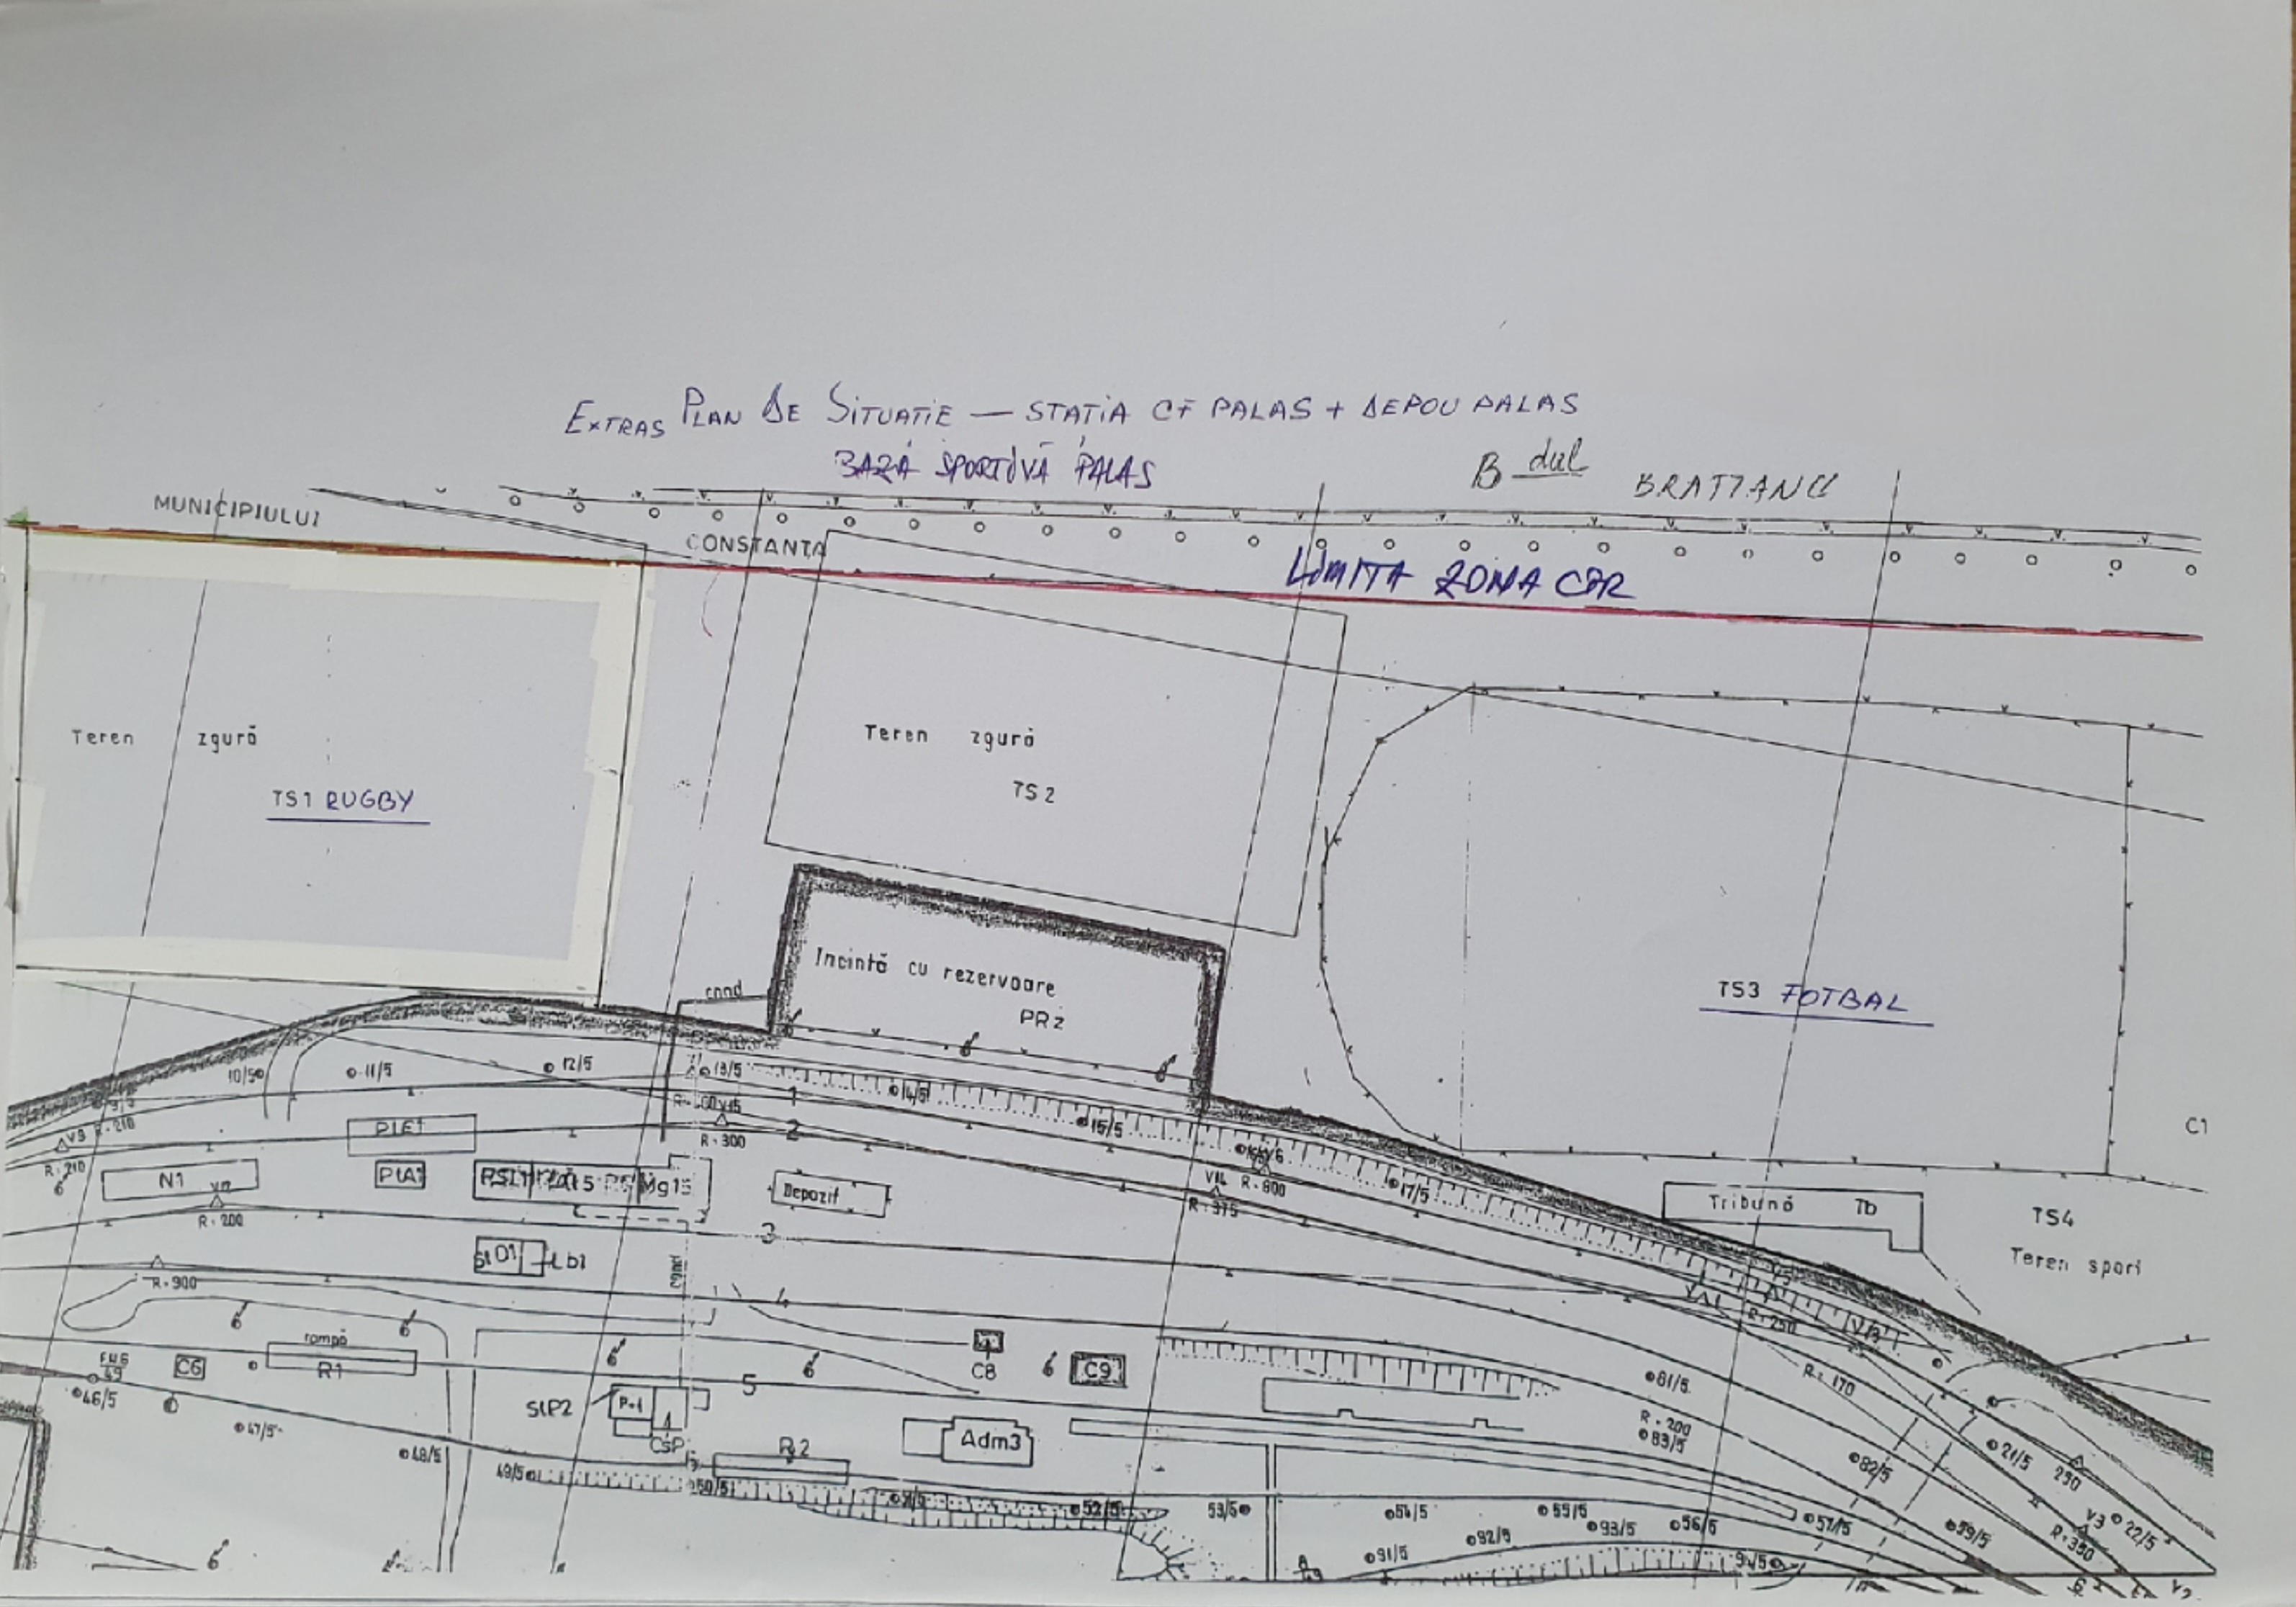 EXTRAS PLAN DE SITUATIE — STATIA CF PALAS + DEPOU PALAS
BAZĂ SPORTIVĂ PALAS
B dul BRATIANU
MUNICIPIULUI
CONSTANTA
LIMITA ZONA CFR
Teren zgură
TS1 RUGBY
Teren zgură
TS 2
Incintă cu rezervoare
PR2
cond
TS3 FOTBAL
C1
10/5
11/5
12/5
13/5
14/5
15/5
17/5
1
2
R=300
R=210
V9
R=210
PLE1
PIA1
N1
R=200
Mg15
Depozit
V14
R=800
R=375
3
Tribună Tb
TS4
Teren sport
Lb1
R=900
4
cond
R=250
rampă
R1
C6
46/5
47/5
48/5
49/5
50/5
SIP2
P-1
CSP
5
R2
C8
C9
Adm3
52/5
53/5
54/5
55/5
56/5
57/5
81/5
R=200
83/5
82/5
R=170
21/5
290
V3
22/5
R=350
59/5
91/5
92/5
93/5
94/5